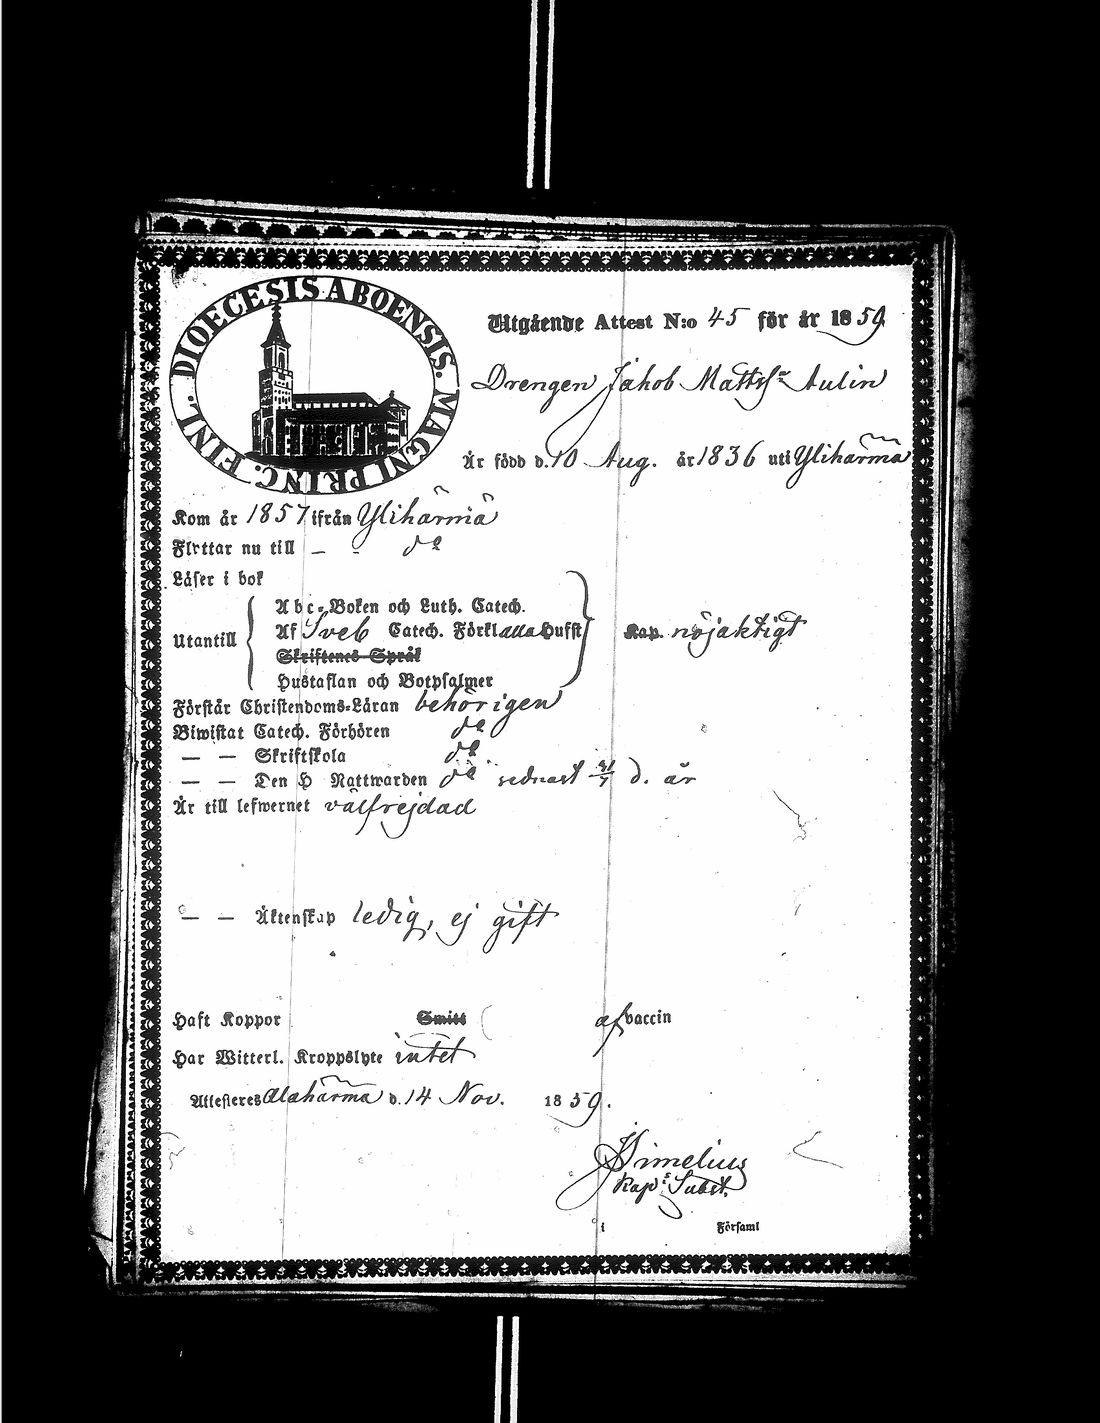 DIOECESIS ABOENSIS. MAGNI PRINC. FINL.
Utgående Attest N:o 45 för år 1859
Drengen Jakob Mattss:n Aulin
Är född d. 10 Aug. år 1836 uti Ylihärmä
Kom år 1857 ifrån Ylihärmä
Flyttar nu till — - do
Läser i bok
Abc-Boken och Luth. Catech.
Utantill Af Sveb Catech. Förkl alla Hufst Kap. nöjaktigt
Skriftenes Språk
Hustaflan och Botpsalmer
Förstår Christendoms-Läran behörigen
Biwistat Catech. Förhören do
— — Skriftskola do
— — Den H Nattwarden do sednast 31/7 d. år
Är till lefwernet välfrejdad
— — Äktenskap ledig, ej gift
Haft Koppor Smitt af vaccin
Har Witterl. Kroppslyte intet
Attesteres Alahärmä d. 14 Nov. 1859.
Simelius
Kap:s Subst.
i Församl